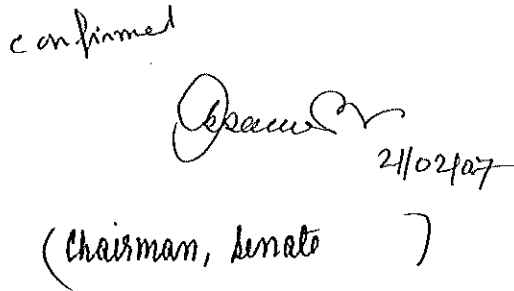 confirmed
21/02/07
(Chairman, Senate )